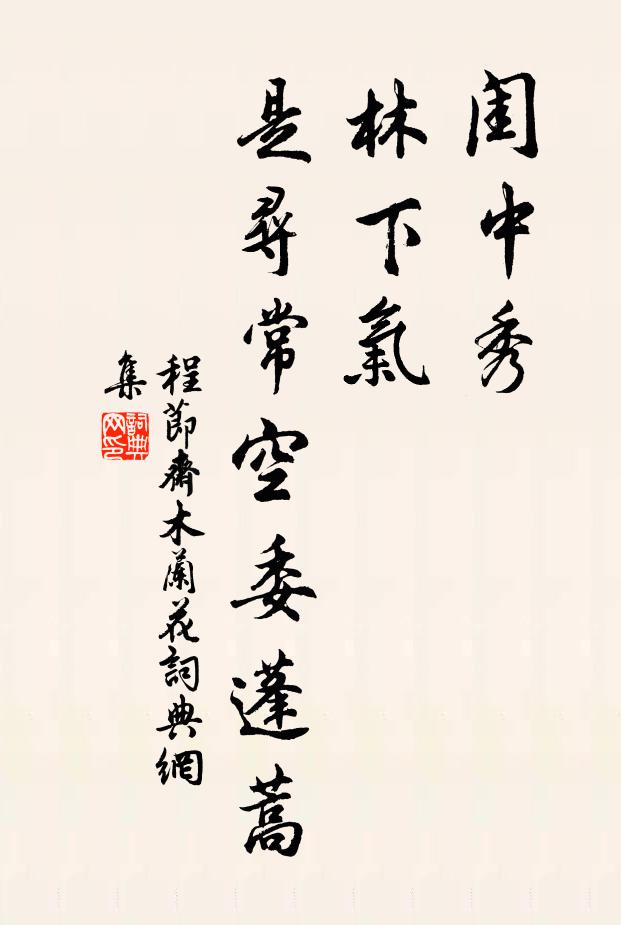 閨中秀
林下氣
是尋常空委蓬蒿
程節齋木蘭花詞典網
集
詞典
网印